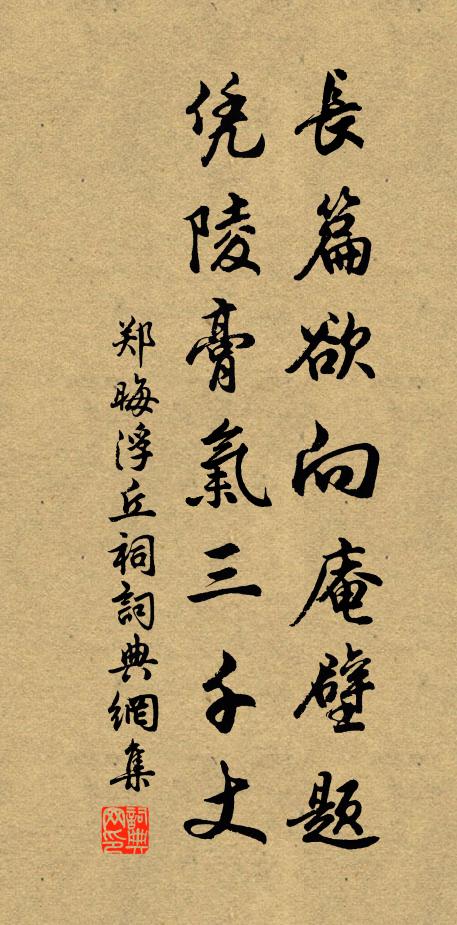 長篇欲向庵壁題
凭陵膏氣三千丈
郑晦浮丘祠詞典網集
詞典網印